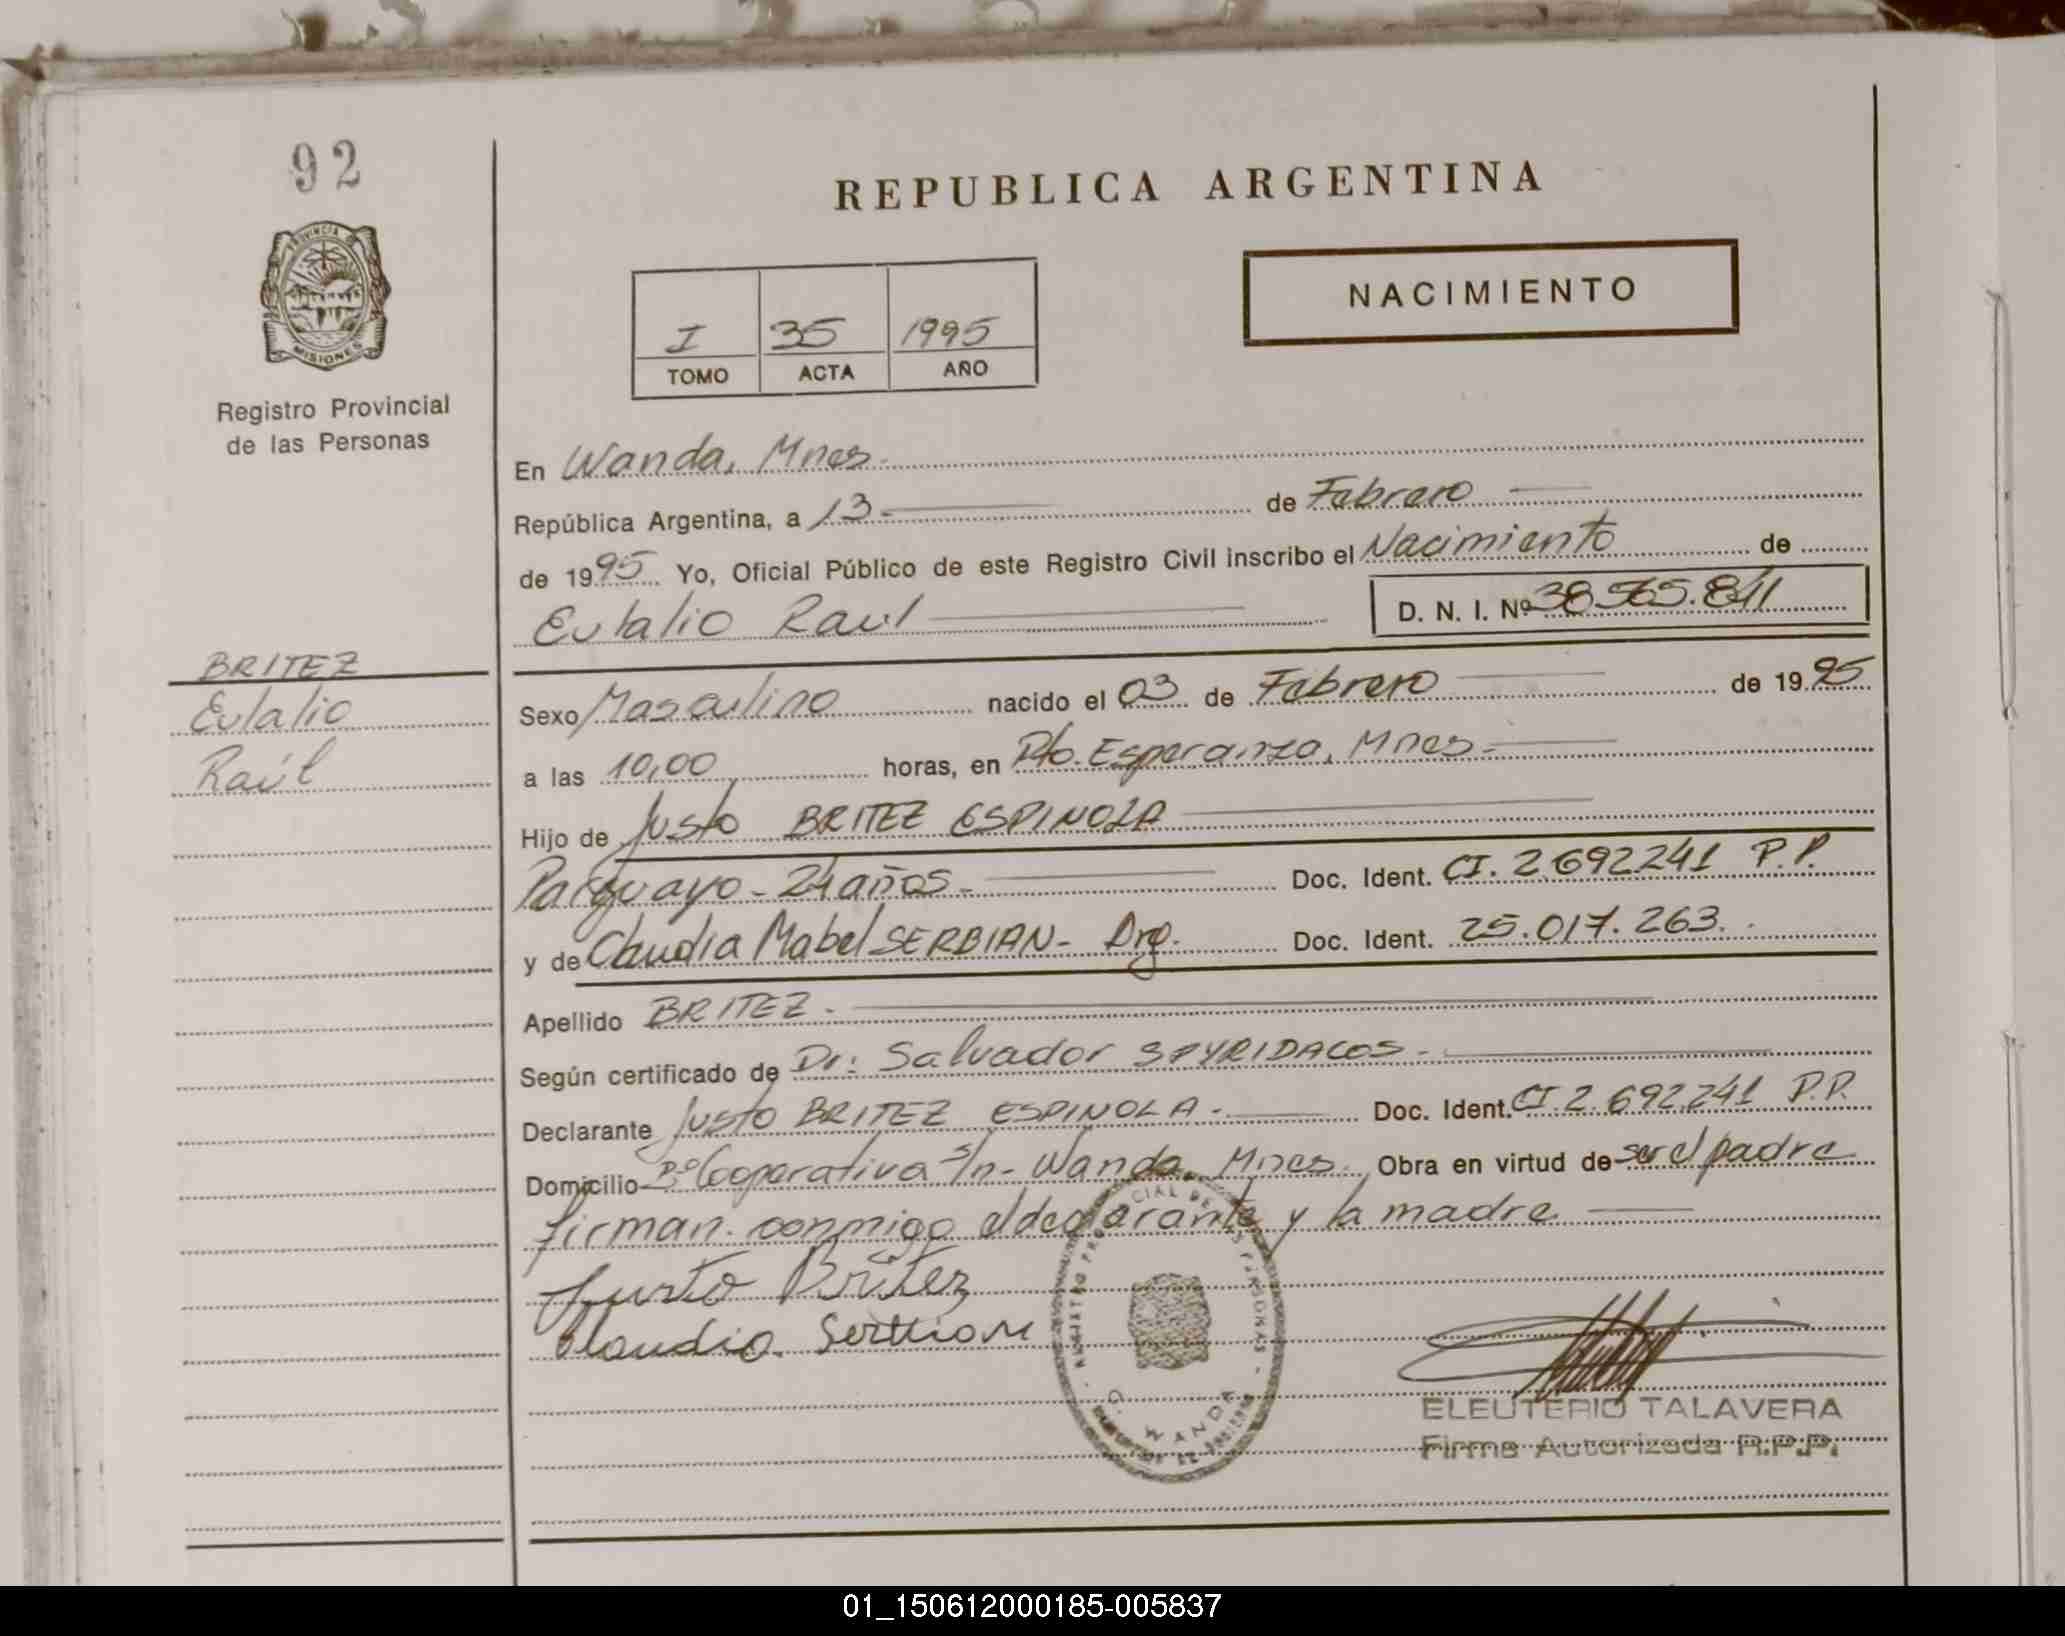 92
REPUBLICA ARGENTINA
PROVINCIA DE
MISIONES
NACIMIENTO
I 35 1995
TOMO ACTA AÑO
Registro Provincial
de las Personas
En Wanda, Mnes.
República Argentina, a 13 de Febrero
de 1995 Yo, Oficial Público de este Registro Civil inscribo el Nacimiento de
Eulalio Raul D. N. I. Nº 38.565.841
BRITEZ
Eulalio
Raúl
Sexo Masculino nacido el 03 de Febrero de 1995
a las 10,00 horas, en Pto. Esperanza, Mnes.
Hijo de Justo BRITEZ ESPINOLA
Parguayo - 24 años - Doc. Ident. CI. 2.692241 P.P.
y de Claudia Mabel SERBIAN - Arg. Doc. Ident. 25.017.263.
Apellido BRITEZ.
Según certificado de Dr: Salvador SPYRIDACOS -
Declarante Justo BRITEZ ESPINOLA. Doc. Ident. CI. 2.692.241 P.P.
Domicilio Bº Cooperativa s/n - Wanda, Mnes. Obra en virtud de ser el padre
firman conmigo el declarante y la madre
Justo Britez
Claudia
REGISTRO PROVINCIAL DE LAS PERSONAS
WANDA
ELEUTERIO TALAVERA
Firma Autorizada R.P.P.
01_150612000185-005837